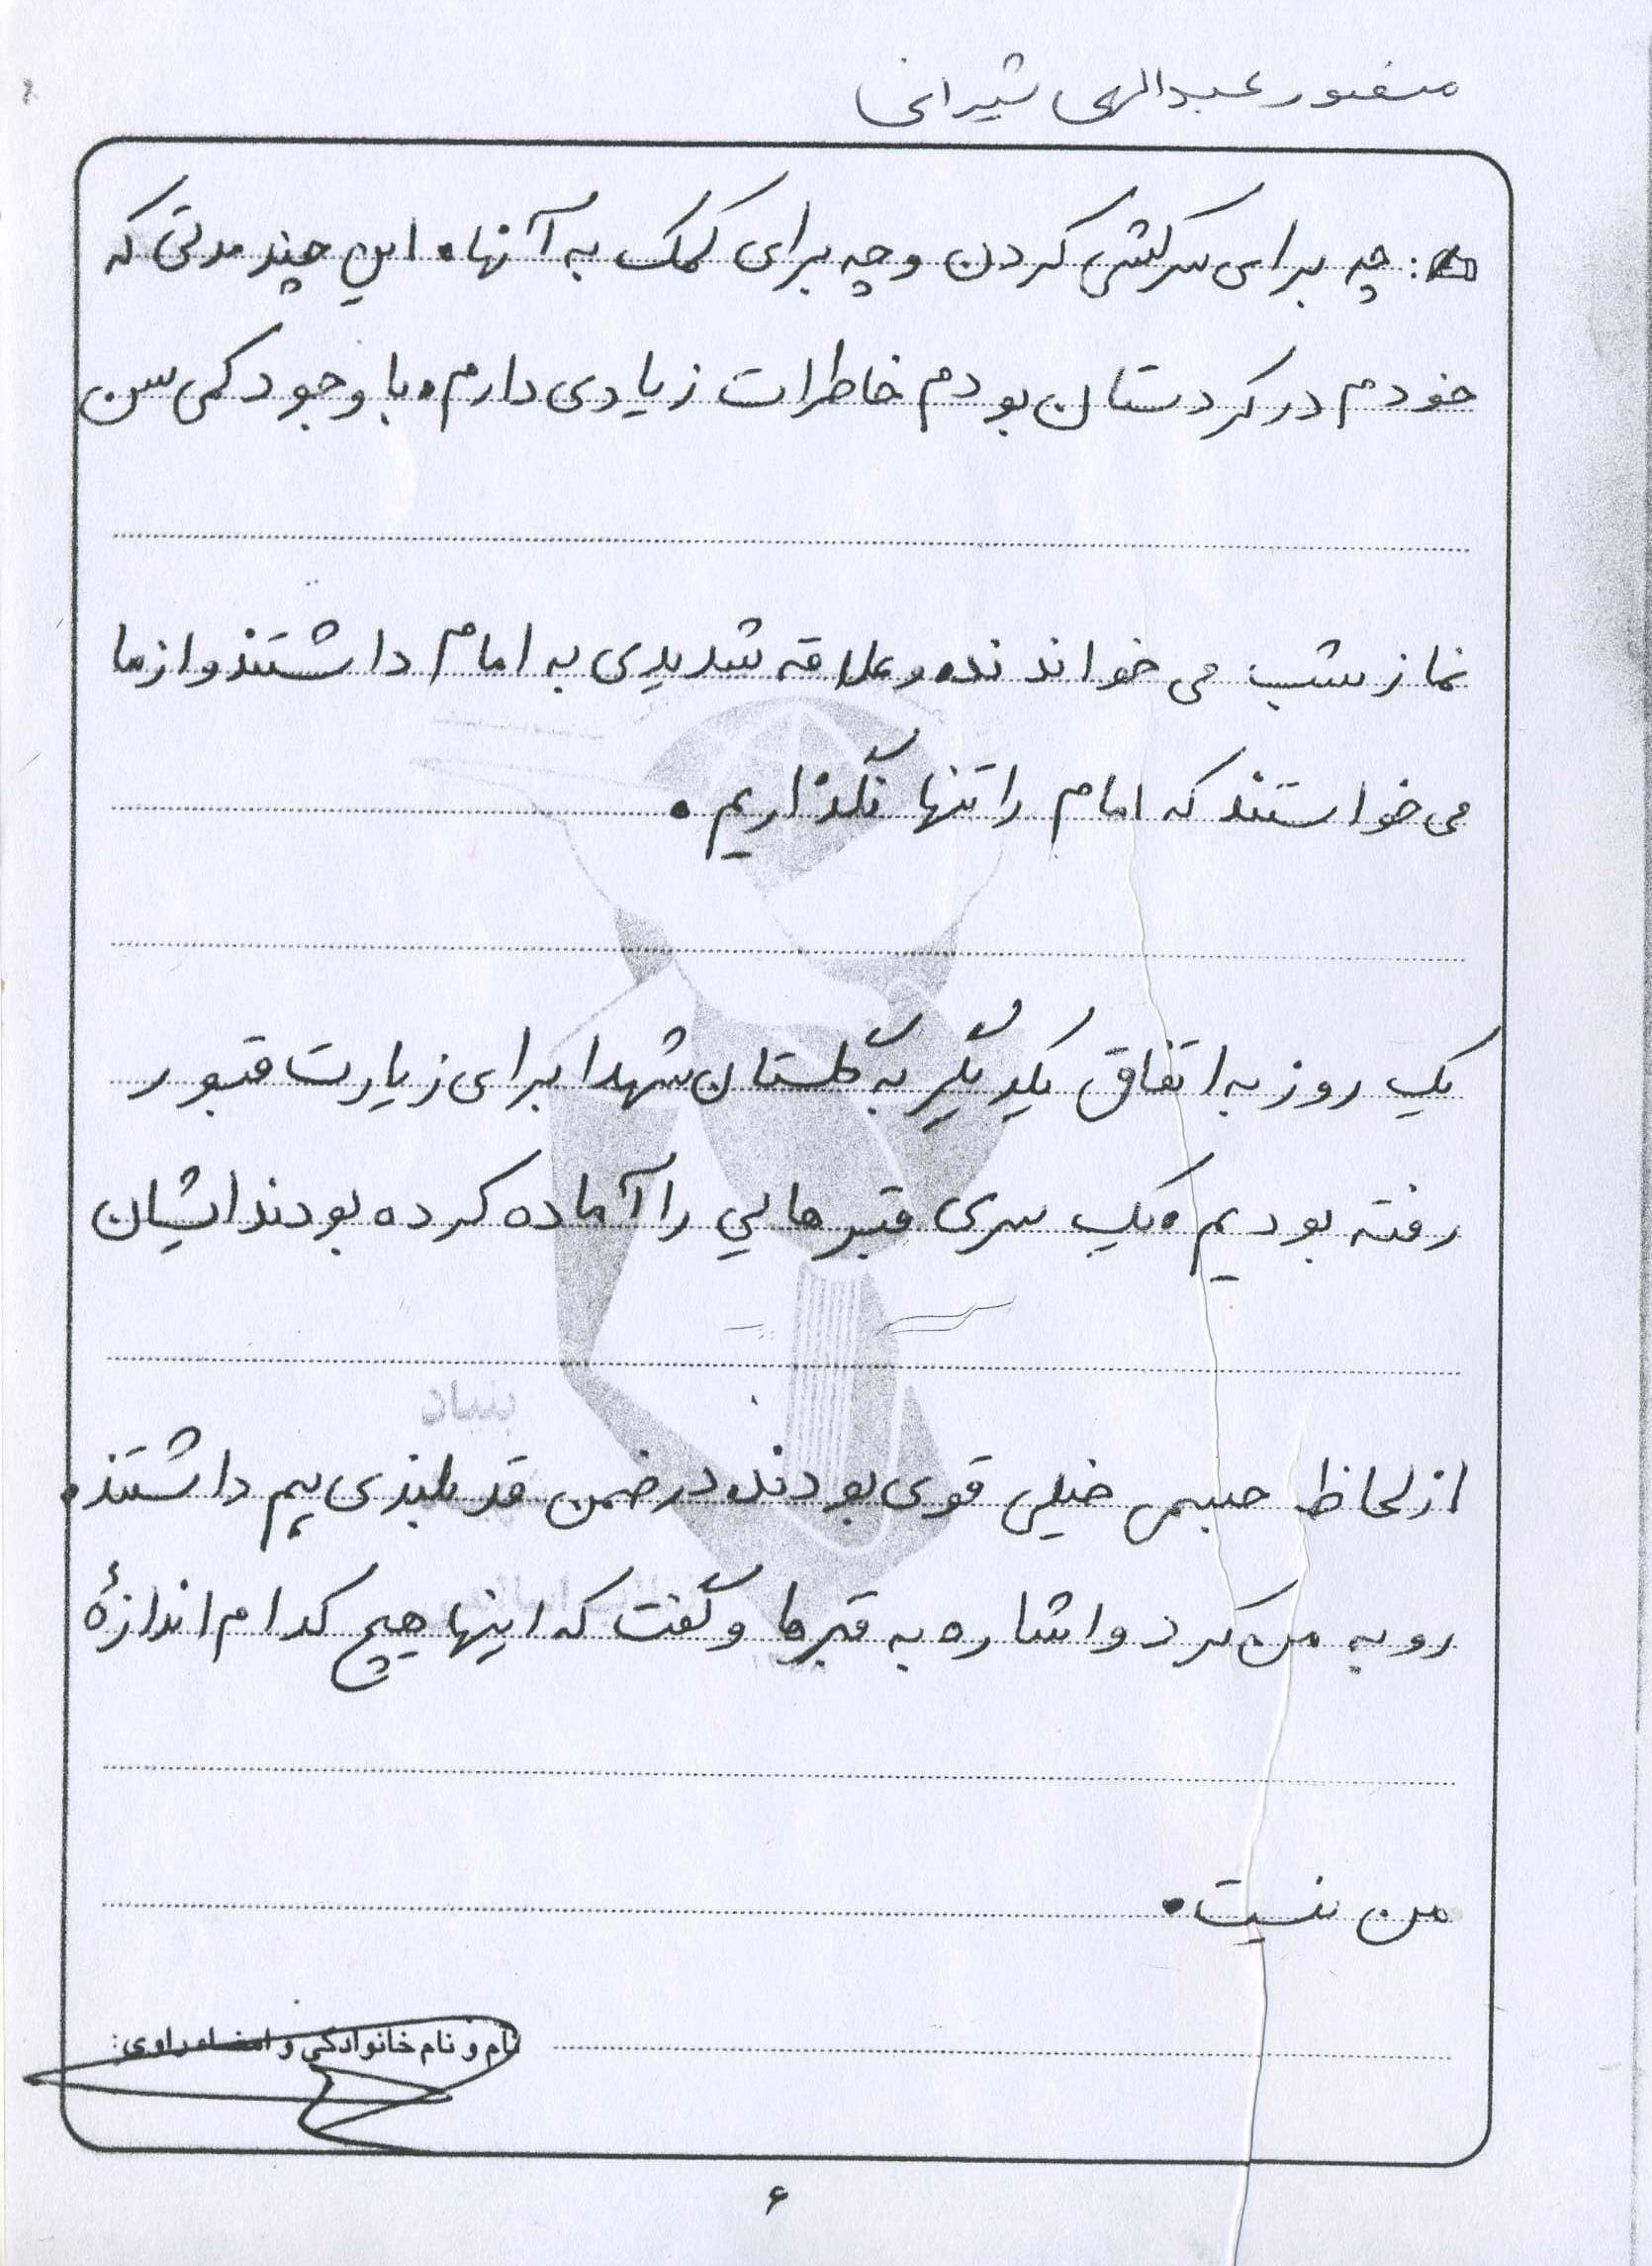 منصور عبدالهی شیرانی
: چه برای سرکشی کردن و چه برای کمک به آنها. این چند مدتی که
خودم در کردستان بودم خاطرات زیادی دارم. با وجود کمی سن
نماز شب می خواندند. و علاقه شدیدی به امام داشتند و از ما
می خواستند که امام را تنها نگذاریم.
یک روز به اتفاق یکدیگر به گلستان شهدا برای زیارت قبور
رفته بودیم. یک سری قبرهایی را آماده کرده بودند ایشان
بنیاد
از لحاظ جسمی خیلی قوی بودند. در ضمن قد بلندی هم داشتند.
رو به من کرد و اشاره به قبرها و گفت که اینها هیچ کدام اندازهٔ
من نیست.
نام و نام خانوادگی و امضاء راوی:
۶